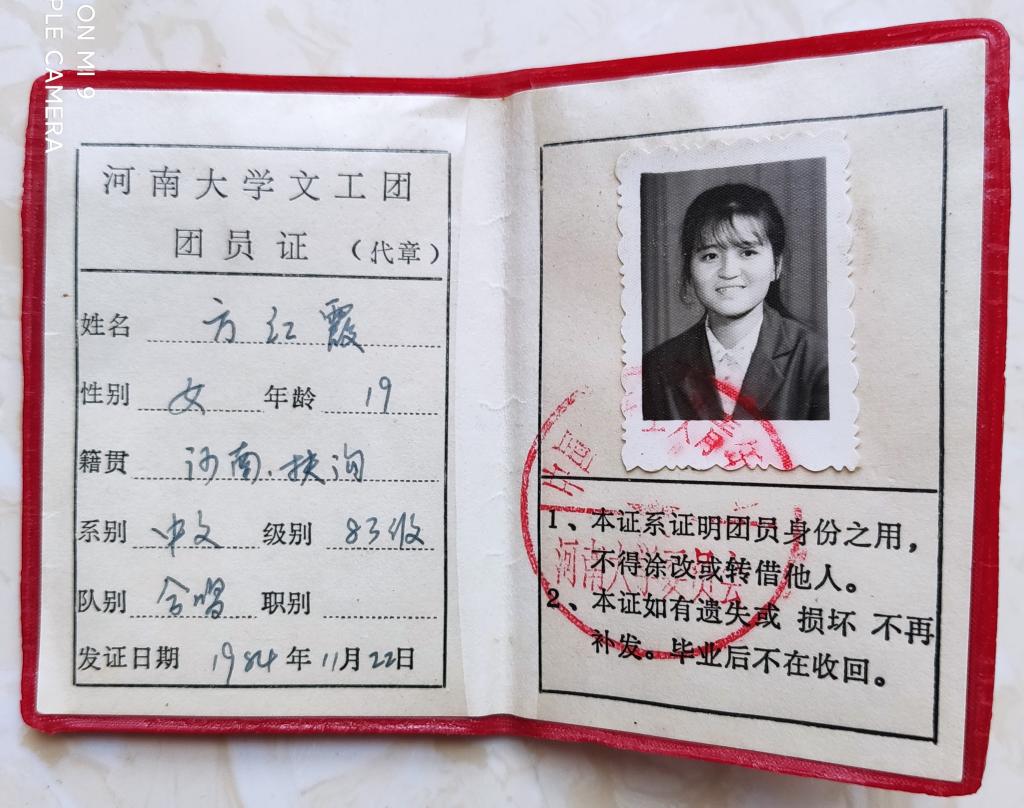 河南大学文工团
团员证（代章）
姓名 方红霞
性别 女 年龄 19
籍贯 河南.扶沟
系别 中文 级别 83级
队别 合唱 职别
发证日期 1984年11月22日
1、本证系证明团员身份之用，
不得涂改或转借他人。
2、本证如有遗失或 损坏 不再
补发。毕业后不在收回。
中国
河南大学委员会
ON MI 9
PLE CAMERA